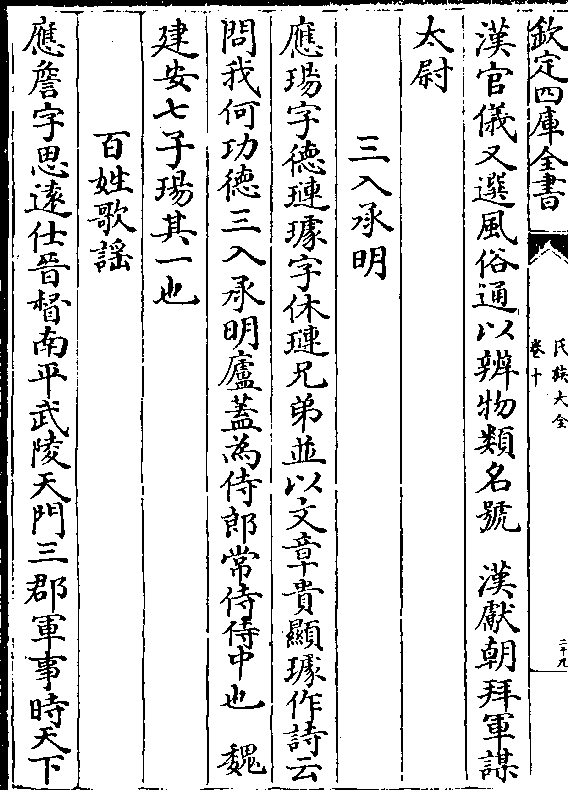 欽定四庫全書
氏族大全
卷十
二十九
漢官儀又選風俗通以辨物類名號　漢獻朝拜軍謀
太尉
三入承明
應瑒字德璉璩字休璉兄弟並以文章貴顯璩作詩云
問我何功德三入承明廬蓋為侍郎常侍侍中也　魏
建安七子瑒其一也
百姓歌謡
應詹字思逺仕晉督南平武陵天門三郡軍事時天下